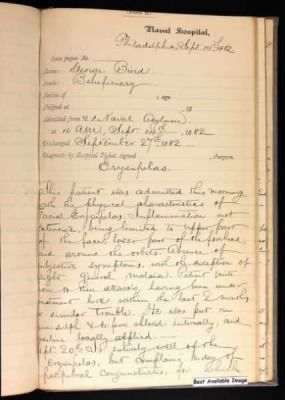 Naval Hospital,
Philadelphia, Sept 14th, 1882
Case paper No.
Name: George Bird
Rank: Beneficiary
Native of ; age
Shipped at , 18
Admitted from U. S. Naval Asylum
at 10 A.M. Sept. 14th, 1882
Discharged September 27th 1882
Diagnosis by Hospital Ticket, signed , Surgeon.
Erysipelas.
This patient was admitted this morning
with the physical characteristics of
Facial Erysipelas. Inflammation not
extensive, being limited to upper part
of the face, lower part of the forehead,
and around the orbits. Absence of
subjective symptoms, with the exception of
slight general malaise. Patient
to these attacks, having been under
treatment here within the last 2 months
for similar trouble. He was put on
internally, and
locally applied
Sept. 20th Is entirely well of the
Erysipelas, but complains today of
palpebral Conjunctivitis, for
Best Available Image